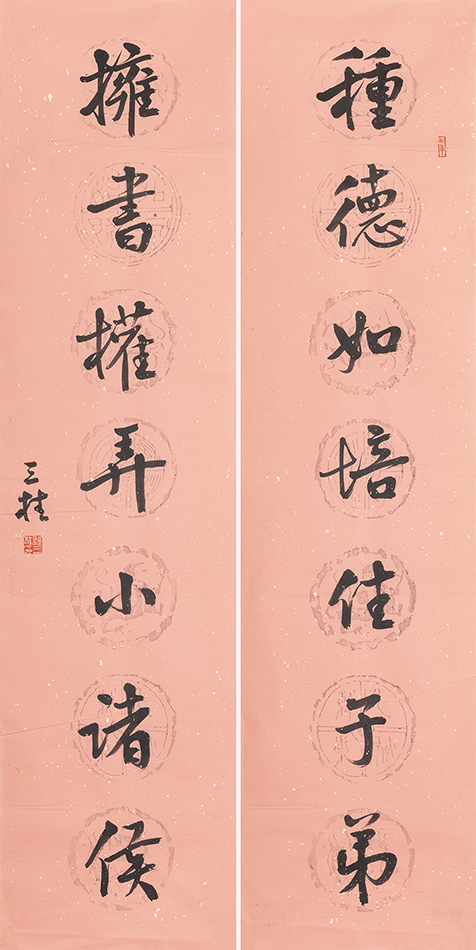 種德如培佳子弟
擁書權弄小諸侯
三桂